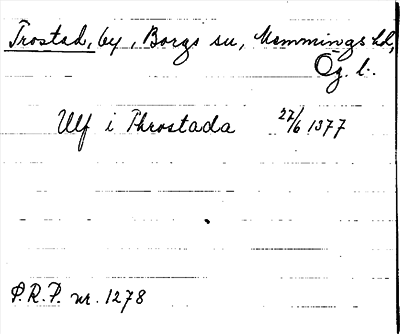 Trostad, by, Borgs sn, Memmings hd,
Ög. l.
Ulf i Throstada 27/6 1377
P.R.P. nr. 1278